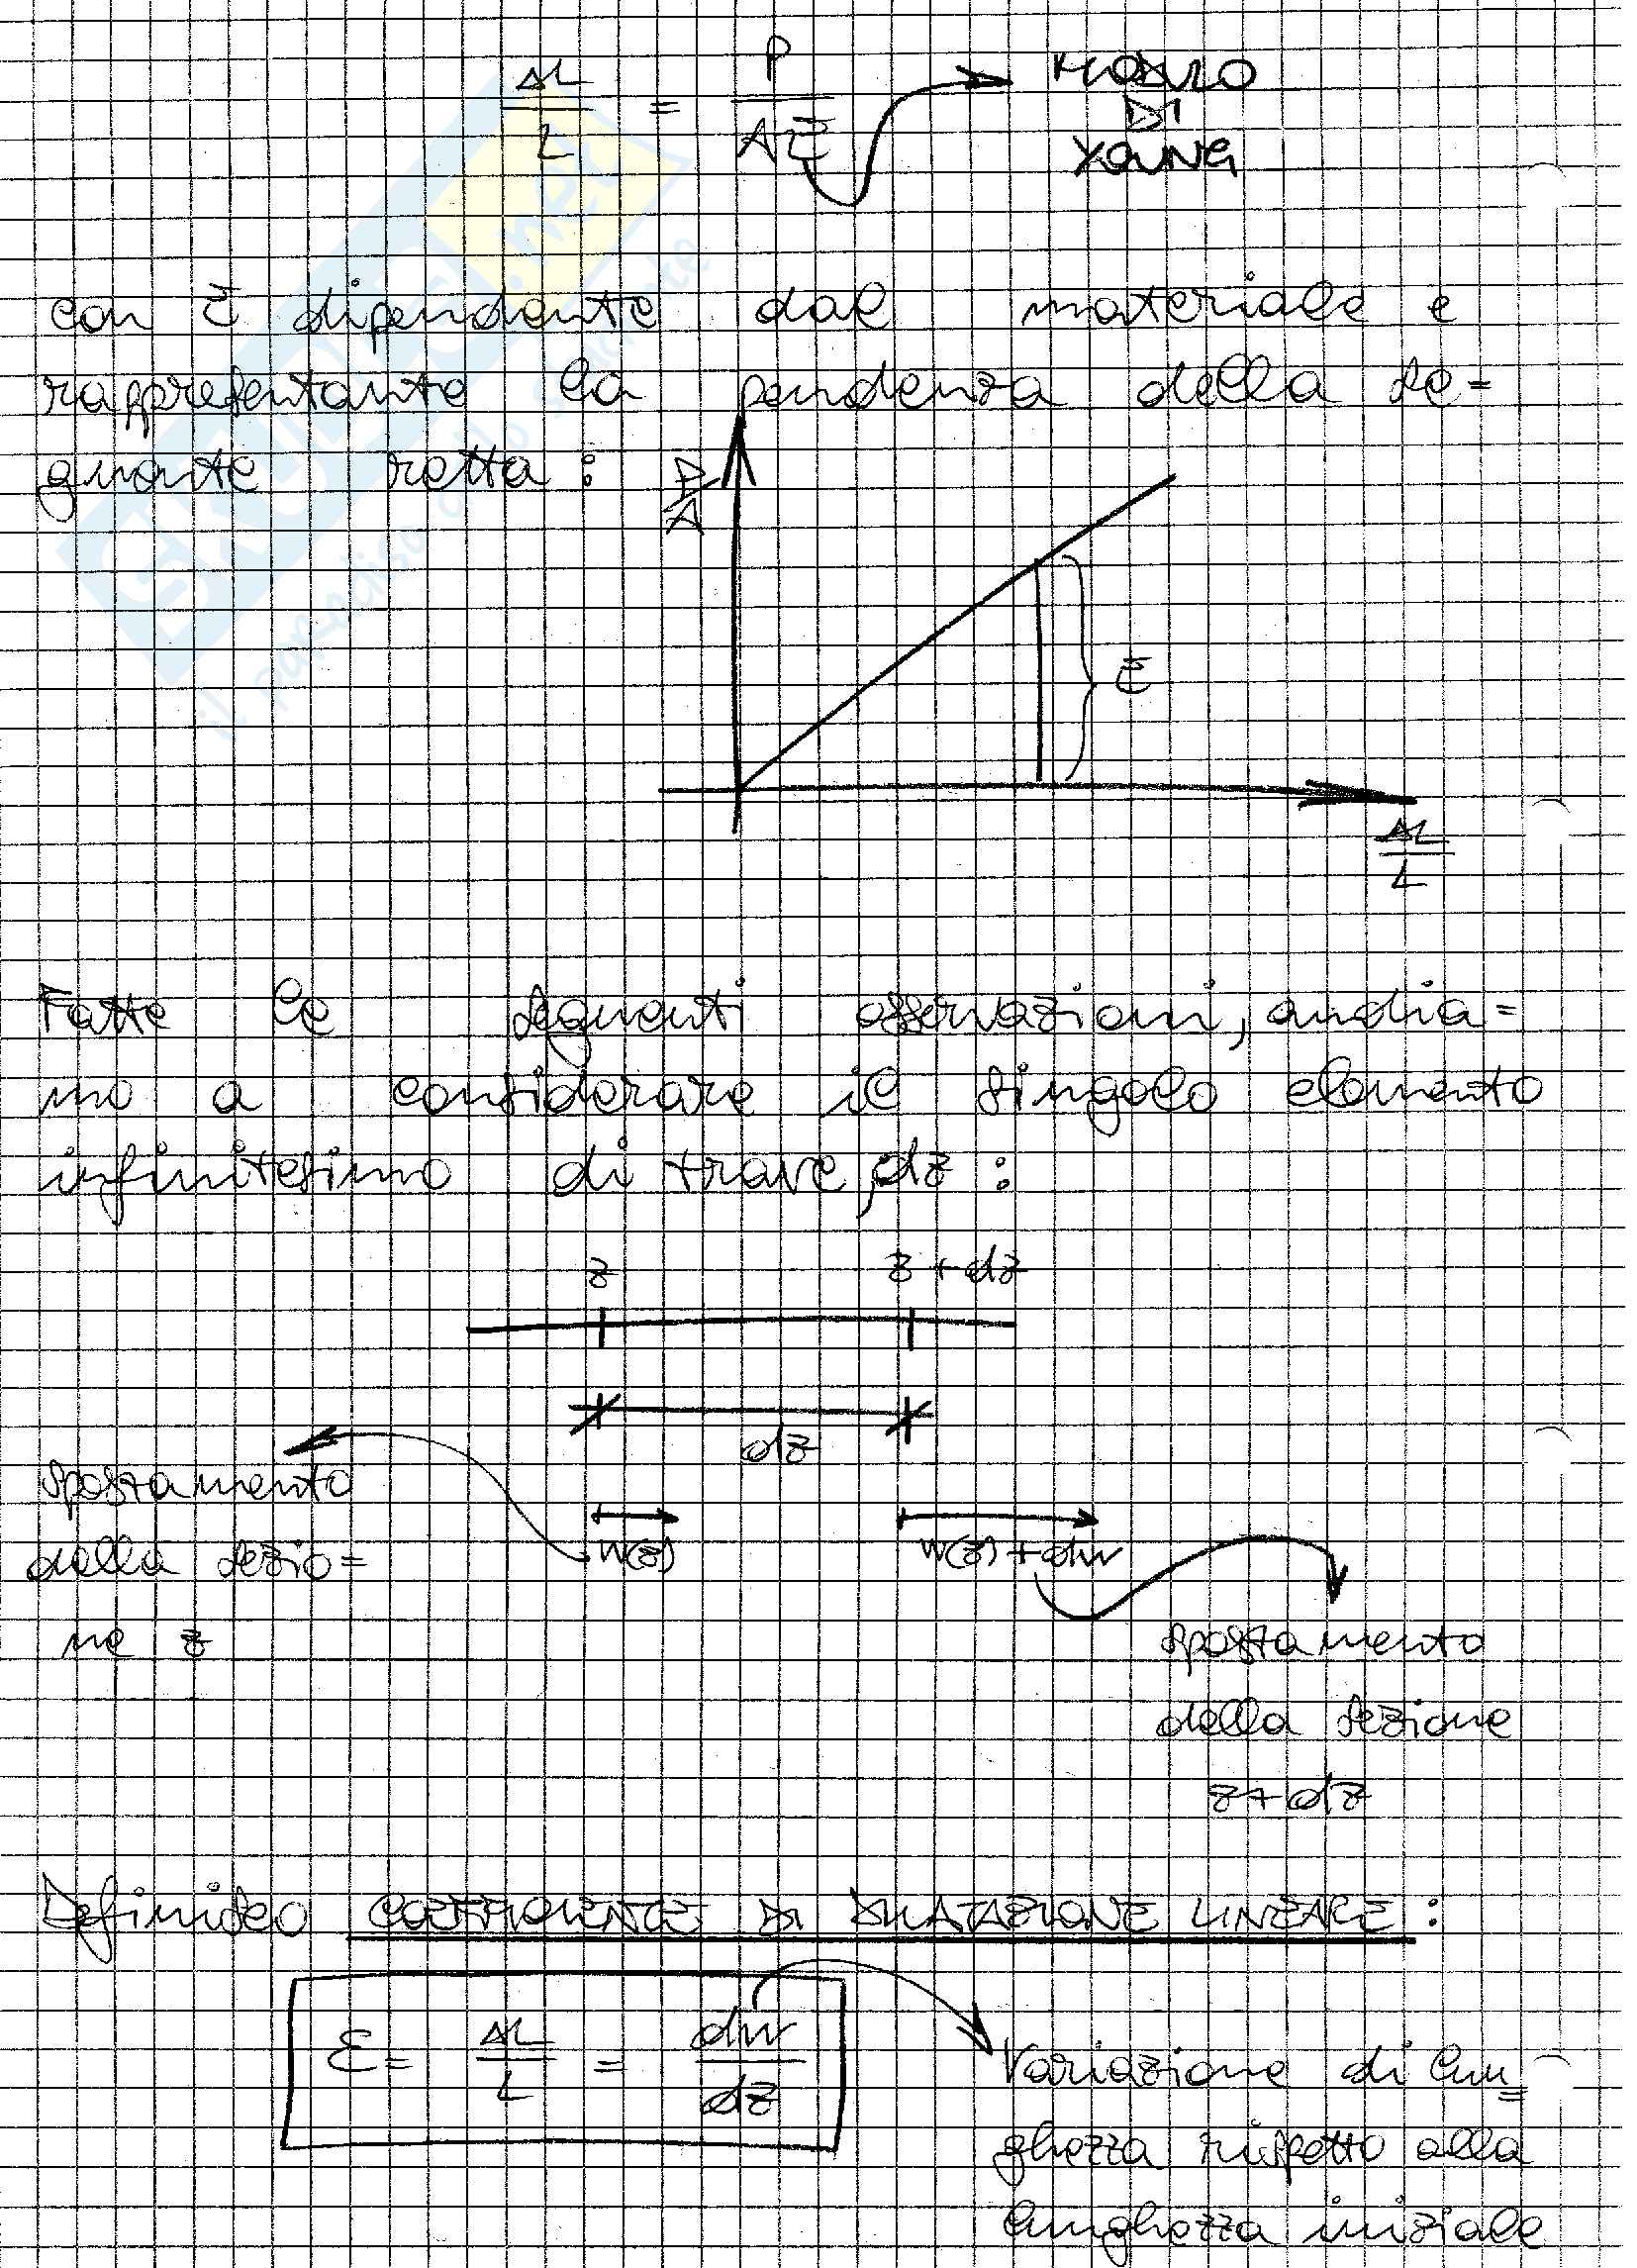 ΔL/L = P/AE
MODULO
DI
YOUNG
con E dipendente dal materiale e
rappresentante la pendenza della se=
guente retta:
P/A
E
ΔL/L
Fatte le seguenti osservazioni, andia=
mo a considerare il singolo elemento
infinitesimo di trave, dz:
z z+dz
dz
spostamento
della sezio=
ne z
w(z) w(z)+dw
spostamento
della sezione
z+dz
Definisco COEFFICIENTE DI DILATAZIONE LINEARE:
ε = ΔL/L = dw/dz
Variazione di lun=
ghezza rispetto alla
lunghezza iniziale
SKUOLA.net
il paradiso dello studente